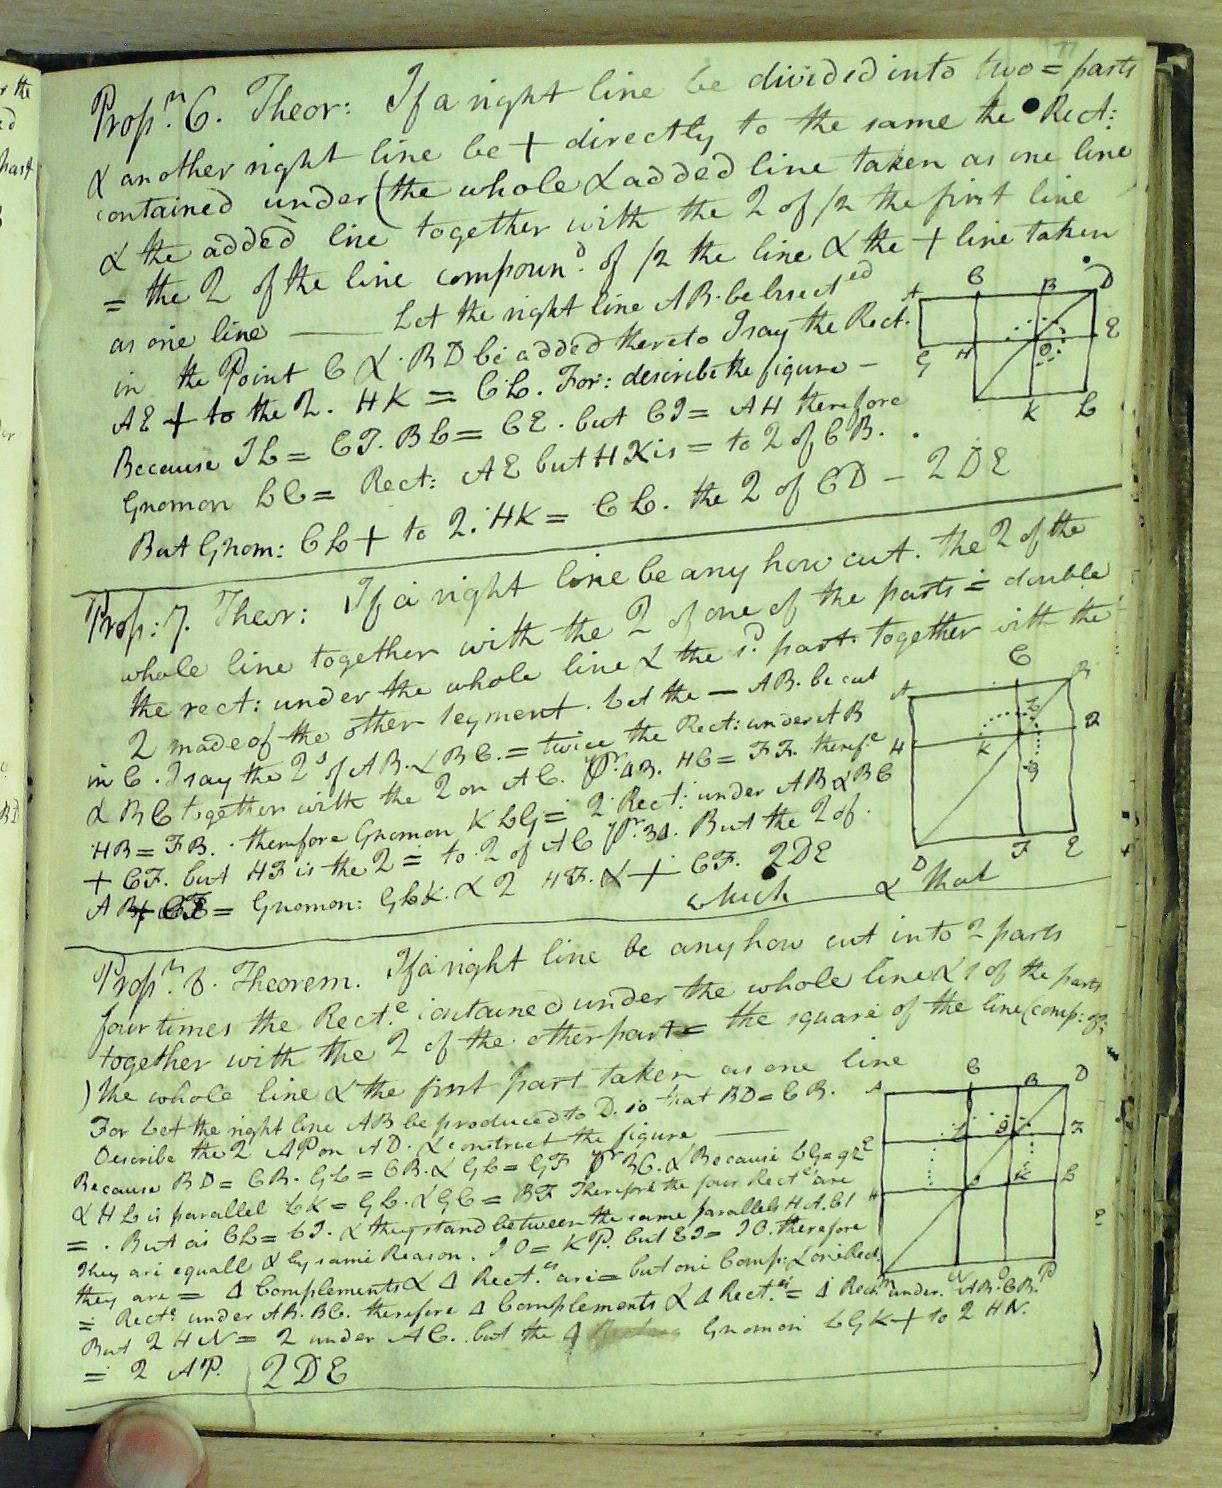 Prop.n 6. Theor: If a right line be divided into two = parts
& another right line be + directly to the same the Rect:
contained under (the whole & added line taken as one line
& the added line together with the 2 of /2 the first line
= the 2 of the line compoun.d of /2 the line & the + line taken
as one line — Let the right line AB. be bisect ed
in the Point C & BD be added thereto I say the Rect.
AE + to the 2. HK = CL. For: describe the figure —
Because IL = CI. BL = CE. but CI = AH therefore
Gnomon LC = Rect: AE but HK is = to 2 of CB.
But Gnom: CL + to 2. HK = CL. the 2 of CD — 2DE
A C B D
G H O E
K L
Prop: 7. Theor: If a right line be any how cut. the 2 of the
whole line together with the 2 of one of the parts = double
the rect: under the whole line & the s.d part together with the
2 made of the other segment. Let the — AB. be cut
in C. I say the 2s of AB. & BC. = twice the Rect: under AB
& BC together with the 2 on AC. Pr. 43. HC = FR. theref.e
HB = FB. therefore Gnomon KLG = 2 Rect: under AB & BC
+ CF. but HF is the 2 = to 2 of AC But the 2 of
AB = Gnomon: GLK. & 2 HF. & + CF. 2DE
which & That
A C B
H K L R
G
D F E
Prop.n 8. Theorem. If a right line be any how cut into 2 parts
four times the Rect.e contained under the whole line & 1 of the parts
together with the 2 of the other part = the square of the line (comp: of:
) the whole line & the first part taken as one line
For Let the right line AB be produced to D. so that BD = CB.
Describe the 2 AP on AD. & construct the figure —
Because BD = CB. GL = CB. & GL = GF Because LG =
& HL is parallel LK = GL. & GC = BF Therefore the four Rect.es are
= . But as CL = LI. & they stand between the same parallels HA. CI
They are equall & by same Reason. IO = KP. but EI = IO. therefore
they are = 4 Complements & 4 Rect.es are = but one Comp: & one Rect.
= Rect.e under AB. BC. therefore 4 Complements & 4 Rect.es = 4 Rect. under. AB. CB.
But 2 HN = 2 under AC. but the 4 Gnomon LGK + to 2 HN.
= 2 AP. 2DE
A C B D
E L G F
H K L
M N O P